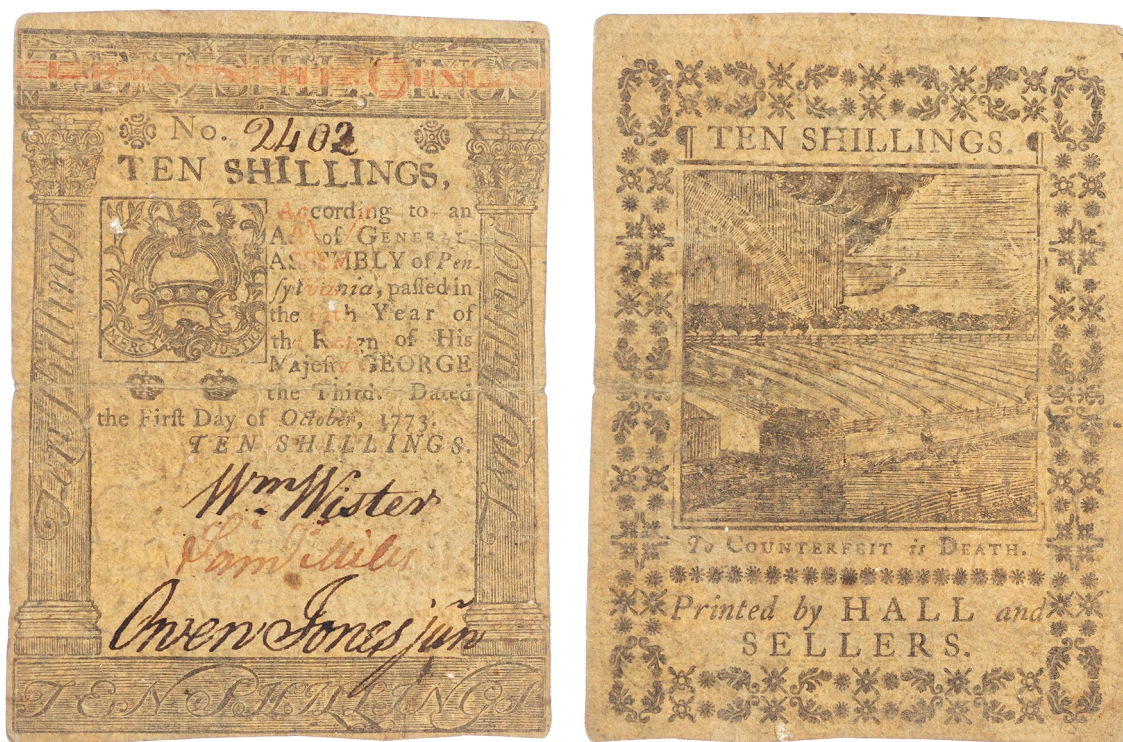 TEN SHILLINGS
No. 2402
TEN SHILLINGS,
According to an
Act of GENERAL
ASSEMBLY of Pen-
ſylvania, paſſed in
the Year of
the Reign of His
Majeſty GEORGE
the Third. Dated
the Firſt Day of October, 1773.
TEN SHILLINGS.
MERCY JUSTICE
Ten Shillings
Ten Shillings
Wm. Wister
Saml Miles
Owen Jones jun
TEN SHILLINGS
¶ TEN SHILLINGS. ¶
To COUNTERFEIT is DEATH.
Printed by HALL and
SELLERS.